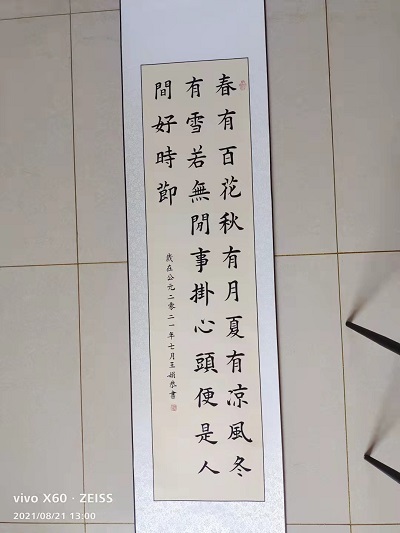 春有百花秋有月夏有凉風冬
有雪若無閒事掛心頭便是人
間好時節
歲在公元二零二一年七月王娟恭書
vivo X60 · ZEISS
2021/08/21 13:00